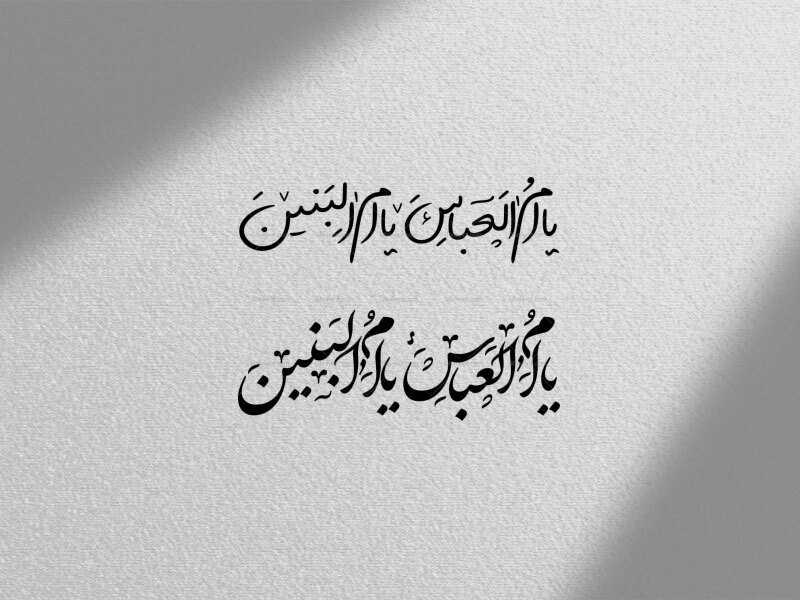 یا ام العباس یا ام البنین
یا ام العباس یا ام البنین